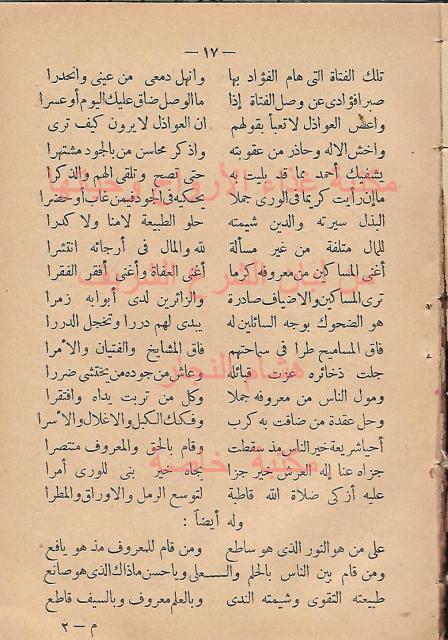 — ١٧ —
تلك الفتاة التى هام الفؤاد بها وانهل دمعى من عينى وانحدرا
صبرا فؤادى عن وصل الفتاة إذا ما الوصل ضاق عليك اليوم أو عسرا
واعض العواذل لا تعبأ بقولهم ان العواذل لا يرون كيف ترى
واخش الاله وحاذر من عقوبته واذكر محاسن من بالجود مشتهرا
يشفيك أحمد مما قد بليت به حتى تصح وتلقى الهم والذكرا
ما إن رأيت كريما فى الورى جملا يحكيه فى الجود فيمن غاب أو حضرا
البذل سيرته والدين شيمته حلو الطبيعة لا منا ولا كدرا
للمال متلفة من غير مسألة لله والمال فى أرجائه انتشرا
أغنى المساكين من معروفه كرما أغنى العفاة وأغنى أفقر الفقرا
ترى المساكين والاضياف صادرة والزائرين لدى أبوابه زمرا
هو الضحوك بوجه السائلين له يبدى لهم دررا وتخجل الدررا
فاق المساميح طرا فى سماحتهم فاق المشايخ والفتيان والأمرا
جلت ذخائره عزت قبائله وعاش من جوده من يختشى ضررا
ومول الناس من معروفه جملا وكل من تربت يداه وافتقرا
وحل عقدة من ضاقت به كرب وفكك الكبل والاغلال والأسرا
أحيا شريعة خير الناس مذ سقطت وقام بالحق والمعروف منتصرا
جزاه عنا إله العرش خير جزا بجاه خير نبى للورى أمرا
عليه أزكى صلاة الله قاطبة لتوسع الرمل والاوراق والمطرا
وله أيضاً :
على من هو النور الذى هو ساطع ومن قام للمعروف مذ هو يافع
ومن قام بين الناس بالحلم والـعلى ويا حسن ما ذاك الذى هو صانع
طبيعته التقوى وشيمته الندى وبالعلم معروف وبالسيف قاطع
م — ٢
مكتبة غذاء الأرواح وحياتها
من لبن الشرع الشريف
هشام النجار
مكتبة خاصة